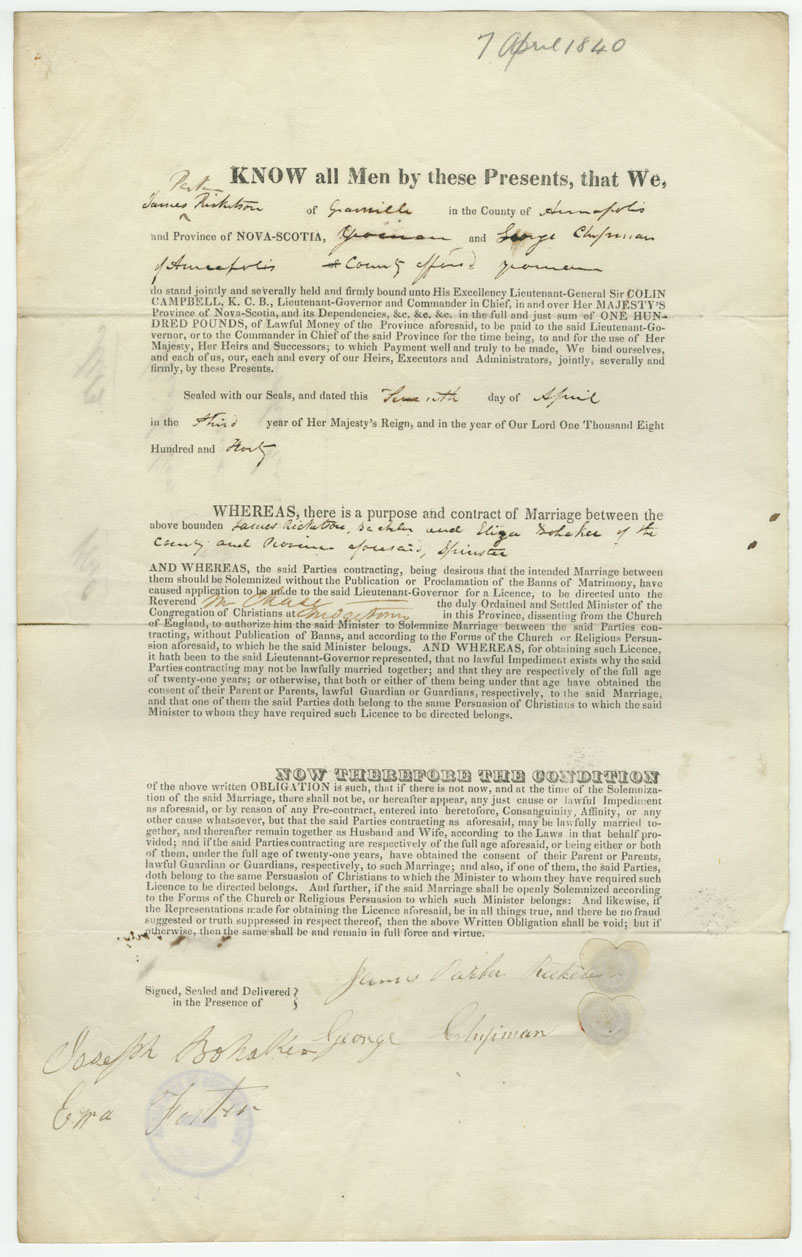 7 April 1840
KNOW all Men by these Presents, that We,
Parker
James Ricketson of Granville in the County of Annapolis
and Province of NOVA-SCOTIA, Yeoman and George Chipman
of Annapolis County afforsd yeoman
do stand jointly and severally held and firmly bound unto His Excellency Lieutenant-General Sir COLIN
CAMPBELL, K. C. B., Lieutenant-Governor and Commander in Chief, in and over Her MAJESTY'S
Province of Nova-Scotia, and its Dependencies, &c. &c. &c. in the full and just sum of ONE HUN-
DRED POUNDS, of Lawful Money of the Province aforesaid, to be paid to the said Lieutenant-Go-
vernor, or to the Commander in Chief of the said Province for the time being, to and for the use of Her
Majesty, Her Heirs and Successors; to which Payment well and truly to be made, We bind ourselves,
and each of us, our, each and every of our Heirs, Executors and Administrators, jointly, severally and
firmly, by these Presents.
Sealed with our Seals, and dated this Seventh day of April
in the third year of Her Majesty's Reign, and in the year of Our Lord One Thousand Eight
Hundred and Forty
WHEREAS, there is a purpose and contract of Marriage between the
above bounden James Ricketson, Bachelor and Eliza Bohaker of the
County and Province aforesaid, Spinster
AND WHEREAS, the said Parties contracting, being desirous that the intended Marriage between
them should be Solemnized without the Publication or Proclamation of the Banns of Matrimony, have
caused application to be made to the said Lieutenant-Governor for a Licence, to be directed unto the
Reverend Mr Chase the duly Ordained and Settled Minister of the
Congregation of Christians at Bridgetown in this Province, dissenting from the Church
of England, to authorize him the said Minister to Solemnize Marriage between the said Parties con-
tracting, without Publication of Banns, and according to the Forms of the Church or Religious Persua-
sion aforesaid, to which be the said Minister belongs. AND WHEREAS, for obtaining such Licence,
it hath been to the said Lieutenant-Governor represented, that no lawful Impediment exists why the said
Parties contracting may not be lawfully married together; and that they are respectively of the full age
of twenty-one years; or otherwise, that both or either of them being under that age have obtained the
consent of their Parent or Parents, lawful Guardian or Guardians, respectively, to the said Marriage,
and that one of them the said Parties doth belong to the same Persuasion of Christians to which the said
Minister to whom they have required such Licence to be directed belongs.
NOW THEREFORE THE CONDITION
of the above written OBLIGATION is such, that if there is not now, and at the time of the Solemniza-
tion of the said Marriage, there shall not be, or hereafter appear, any just cause or lawful Impediment
as aforesaid, or by reason of any Pre-contract, entered into heretofore, Consanguinity, Affinity, or any
other cause whatsoever, but that the said Parties contracting as aforesaid, may be lawfully married to-
gether, and thereafter remain together as Husband and Wife, according to the Laws in that behalf pro-
vided; and if the said Parties contracting are respectively of the full age aforesaid, or being either or both
of them, under the full age of twenty-one years, have obtained the consent of their Parent or Parents,
lawful Guardian or Guardians, respectively, to such Marriage; and also, if one of them, the said Parties,
doth belong to the same Persuasion of Christians to which the Minister to whom they have required such
Licence to be directed belongs. And further, if the said Marriage shall be openly Solemnized according
to the Forms of the Church or Religious Persuasion to which such Minister belongs: And likewise, if
the Representations made for obtaining the Licence aforesaid, be in all things true, and there be no fraud
suggested or truth suppressed in respect thereof, then the above Written Obligation shall be void; but if
otherwise, then the same shall be and remain in full force and virtue.
James Parker Ricketson
Signed, Sealed and Delivered
in the Presence of
George Chipman
Joseph Bohaker
Ezra Foster